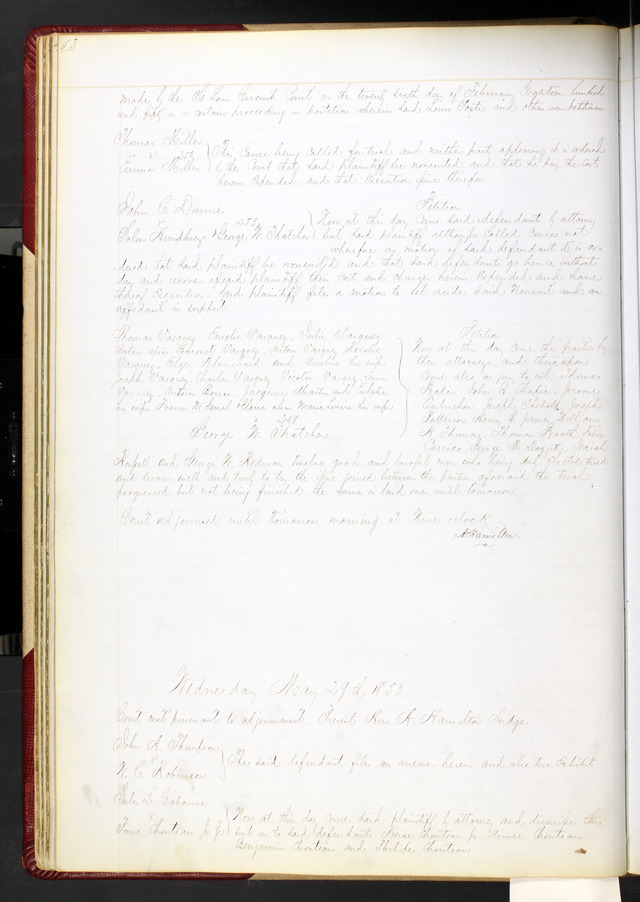 83
made by the St Louis Circuit Court on the twenty sixth day of February Eighteen hundred
and fifty in a certain proceeding in partition wherein said Louis and others were petitioners
Thomas Miller
vs 252
Emma Miller
This cause being called for trial and neither party appearing it is ordered
by the Court that said plaintiff be nonsuited and that he pay the cost
herein expended and that execution issue therefor
John C Dinnies
253
John Humphreys & George W. Thatcher
Petition
Now at this day come said defendants by attorney
but said plaintiff although called comes not
wherefore on motion of said defendants it is or-
dered that said plaintiff be nonsuited and that said defendants go hence without
day and recover of said plaintiff their cost and charges herein expended and have
thereof Execution. Said plaintiff files a motion to set aside said Nonsuit and an
affidavit in support
Thomas Vasquez Emilie Vasquez, Julia Vasquez
Antoine alias Baronet Vasquez, Anton Vasquez
Vasquez, Blanchard and his wife
Joseph Vasquez Charles Vasquez Vasquez,
Vasquez, Antoine Martin and
his wife Francis W. alias Marie Louise his wife
248
George W. Thatcher
Petition
Now at this day come the parties by
their attorneys and thereupon
come also a jury to wit: Thomas
Baker John R. Jerome
Joseph Joseph
Patterson Henry S. James, William
H. Thomas, Thomas
Carrico, George
Russell and George W. Redman twelve good and lawful men who being duly elected tried
and sworn well and truly to try the issue joined between the parties aforesaid the trial
progressed but not being finished the same is laid over until tomorrow.
Court adjourned until tomorrow morning at Nine oclock
A Hamilton
Wednesday May 29th 1850
Court met pursuant to adjournment. Present Hon A. Hamilton Judge
John A. Thornton
vs
N. C. Robinson
The said defendant files an answer herein and also two exhibits
Jules L. Cabanne
vs
Pierre Chouteau jr
Now at this day comes said plaintiff by attorney and dismisses this
suit as to said defendants Pierre Chouteau jr, Chouteau
Benjamin Chouteau and Chouteau